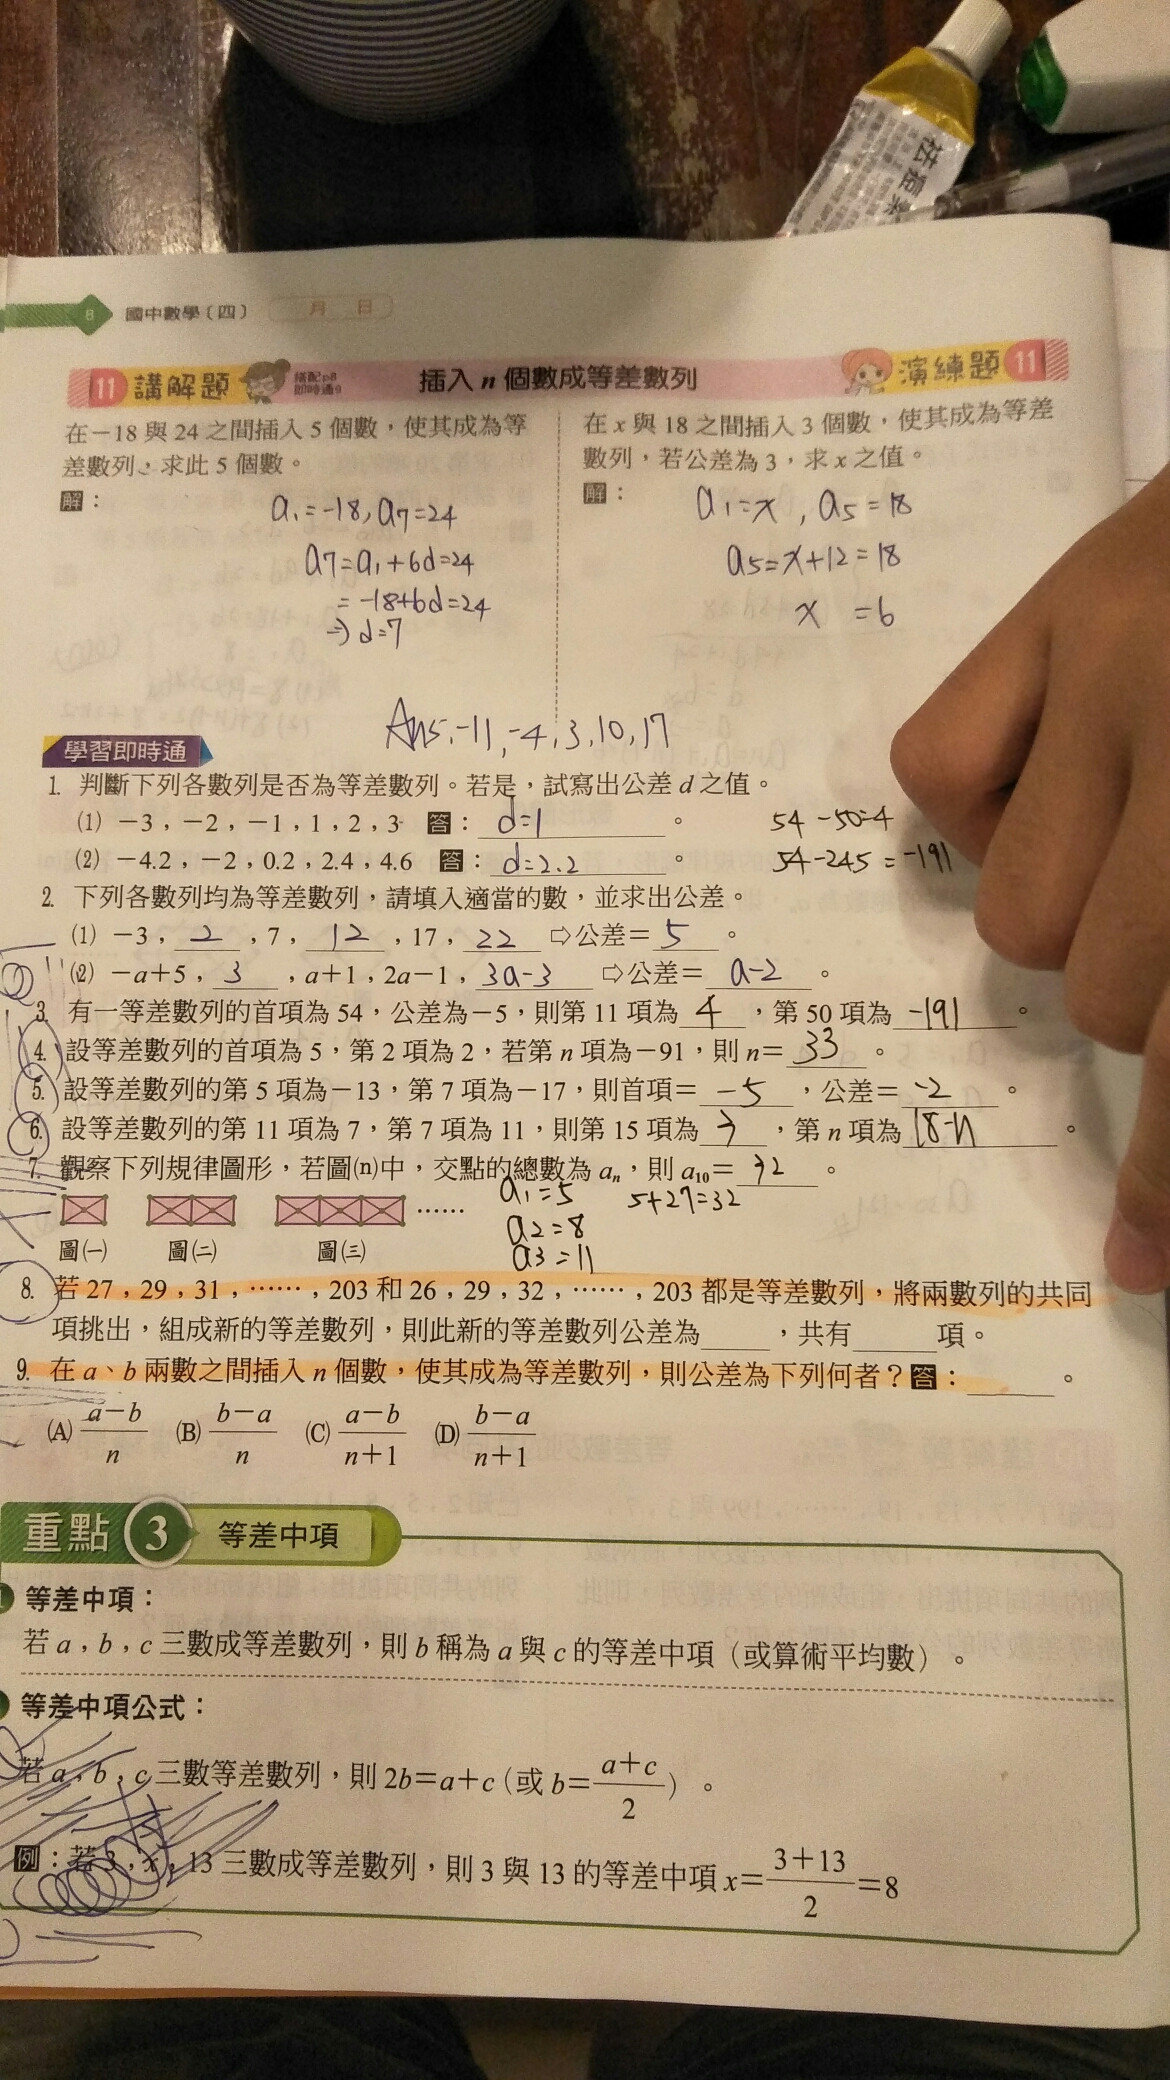 8 國中數學〔四〕 月 日
11 講解題 搭配p8 即時通9 插入 n 個數成等差數列 演練題 11
在－18 與 24 之間插入 5 個數，使其成為等
差數列，求此 5 個數。
解：
a₁=-18, a₇=24
a₇=a₁+6d=24
=-18+6d=24
⇒d=7
Ans:-11,-4,3,10,17
在 x 與 18 之間插入 3 個數，使其成為等差
數列，若公差為 3，求 x 之值。
解：
a₁=x , a₅=18
a₅=x+12=18
x =6
學習即時通
1. 判斷下列各數列是否為等差數列。若是，試寫出公差 d 之值。
⑴ －3，－2，－1，1，2，3 答：d=1。
54-50=4
⑵ －4.2，－2，0.2，2.4，4.6 答：d=2.2。
54-245=-191
2. 下列各數列均為等差數列，請填入適當的數，並求出公差。
⑴ －3，2，7，12，17，22 ⇨公差＝5。
⑵ －a＋5，3，a＋1，2a－1，3a-3 ⇨公差＝a-2。
3. 有一等差數列的首項為 54，公差為－5，則第 11 項為4，第 50 項為-191。
4. 設等差數列的首項為 5，第 2 項為 2，若第 n 項為－91，則 n＝33。
5. 設等差數列的第 5 項為－13，第 7 項為－17，則首項＝-5，公差＝-2。
6. 設等差數列的第 11 項為 7，第 7 項為 11，則第 15 項為3，第 n 項為18-n。
7. 觀察下列規律圖形，若圖⒩中，交點的總數為 aₙ，則 a₁₀＝32。
a₁=5 5+27=32
a₂=8
a₃=11
……
圖㈠ 圖㈡ 圖㈢
8. 若 27，29，31，……，203 和 26，29，32，……，203 都是等差數列，將兩數列的共同
項挑出，組成新的等差數列，則此新的等差數列公差為＿＿，共有＿＿項。
9. 在 a、b 兩數之間插入 n 個數，使其成為等差數列，則公差為下列何者？答：＿＿。
(A) (a－b)/n (B) (b－a)/n (C) (a－b)/(n＋1) (D) (b－a)/(n＋1)
重點 3 等差中項
等差中項：
若 a，b，c 三數成等差數列，則 b 稱為 a 與 c 的等差中項（或算術平均數）。
等差中項公式：
若 a，b，c 三數等差數列，則 2b＝a＋c（或 b＝(a＋c)/2）。
例：若 3，x，13 三數成等差數列，則 3 與 13 的等差中項 x＝(3＋13)/2＝8